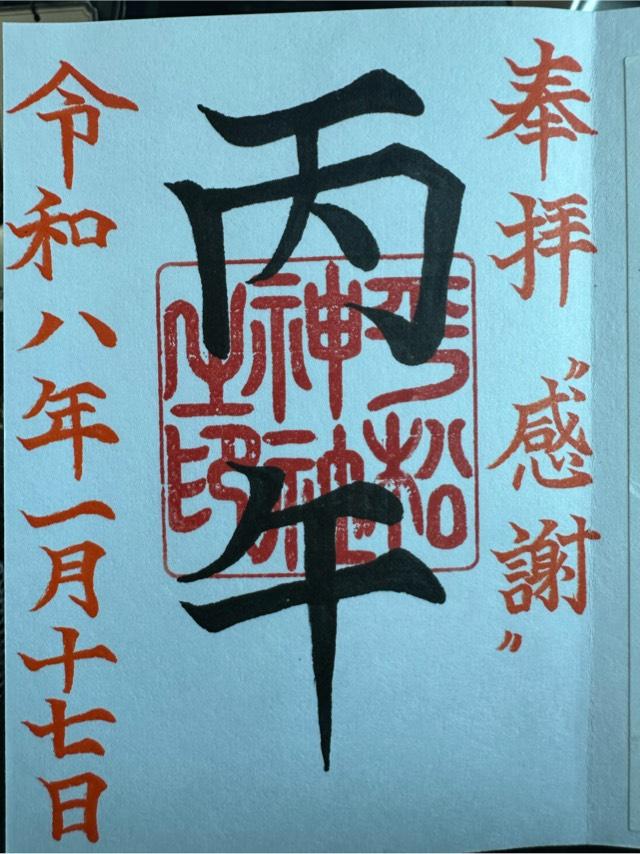 奉拝 〝感謝〟
丙午
平松
神社
之印
令和八年一月十七日